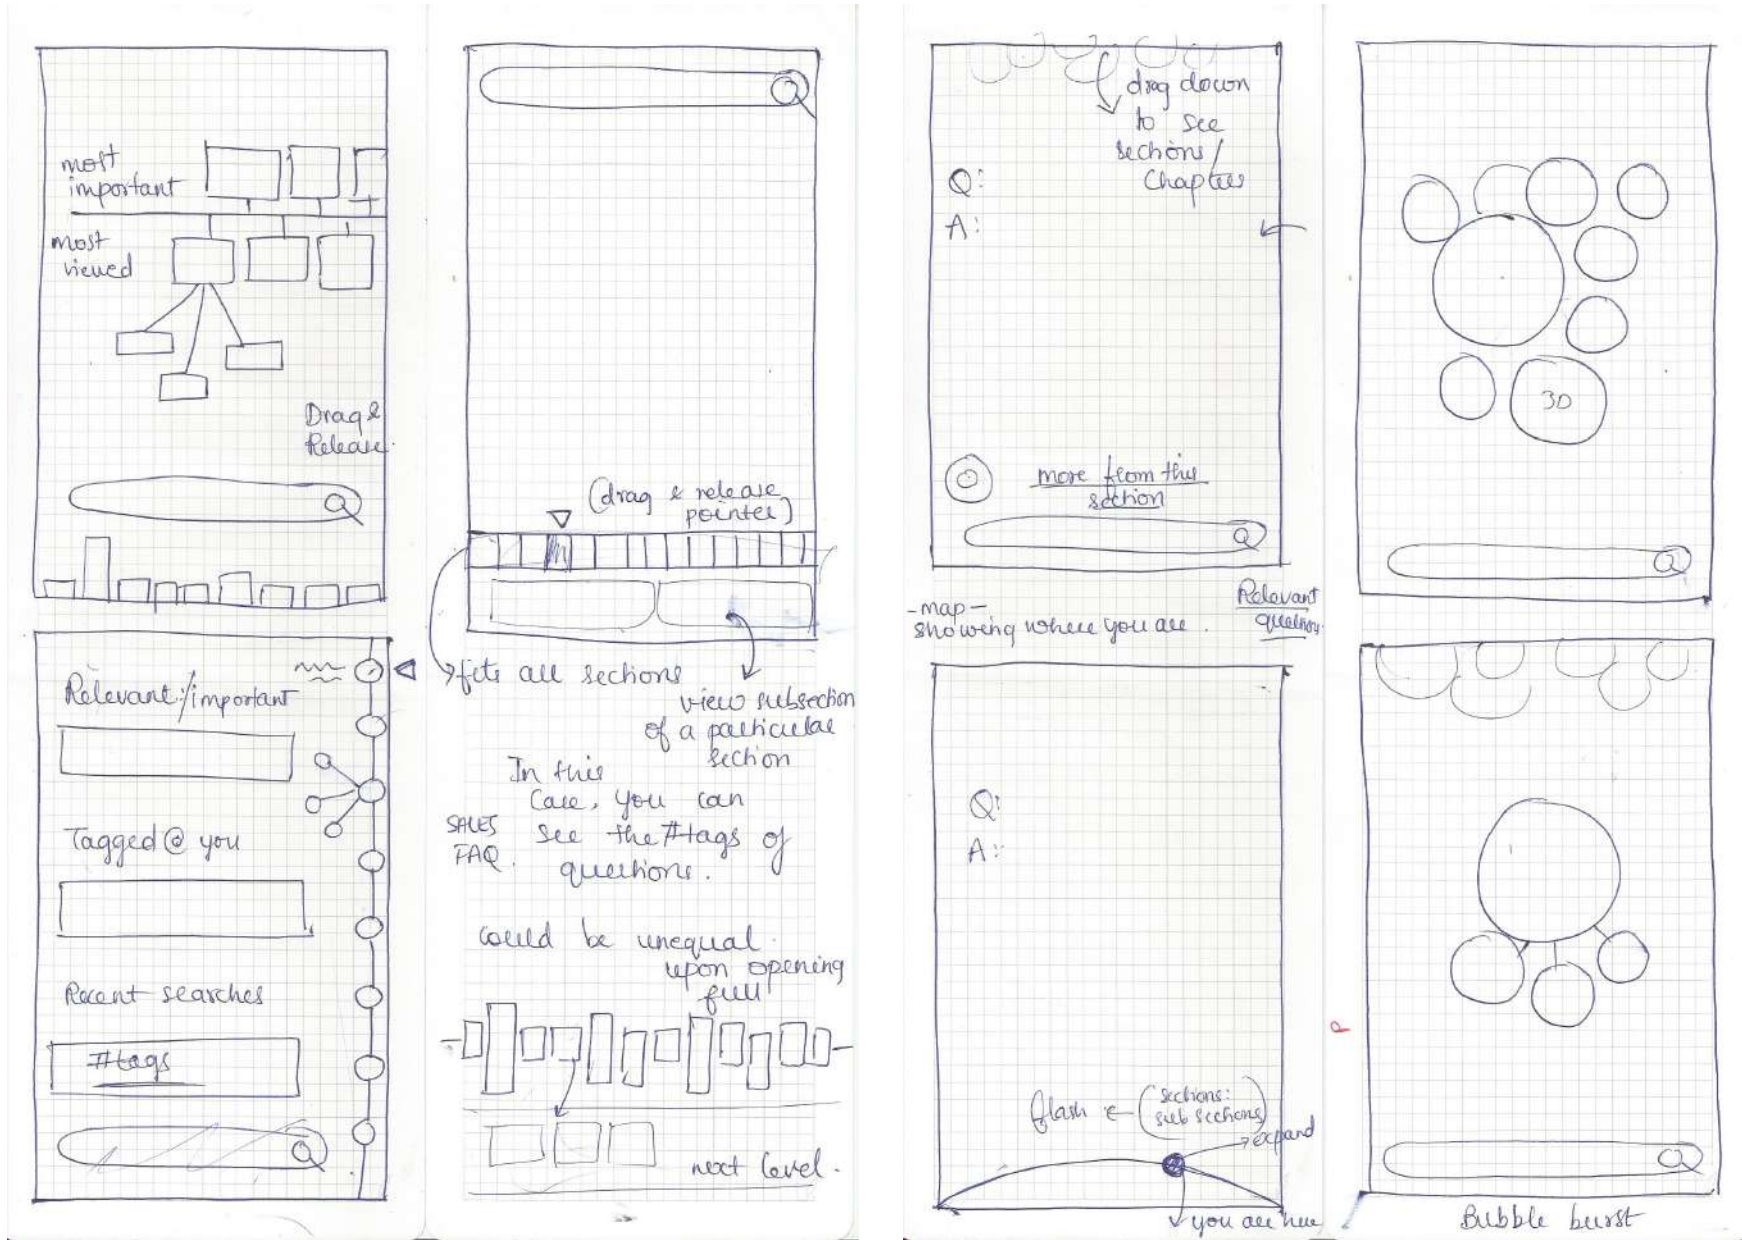 most
important
most
viewed
Drag &
Release.
Relevant/important
Tagged @ you
Recent searches
#tags
(drag & release
pointer)
fits all sections
view subsection
of a particular
section
In this
case, you can
see the #tags of
questions.
SALES
FAQ.
could be unequal
upon opening
full
next level.
drag down
to see
sections/
Chapters
Q:
A:
more from this
section
-map-
showing where you are.
Relevant
Q:
A:
flash ← (sections:
sub sections)
expand
you are here
3D
Bubble burst